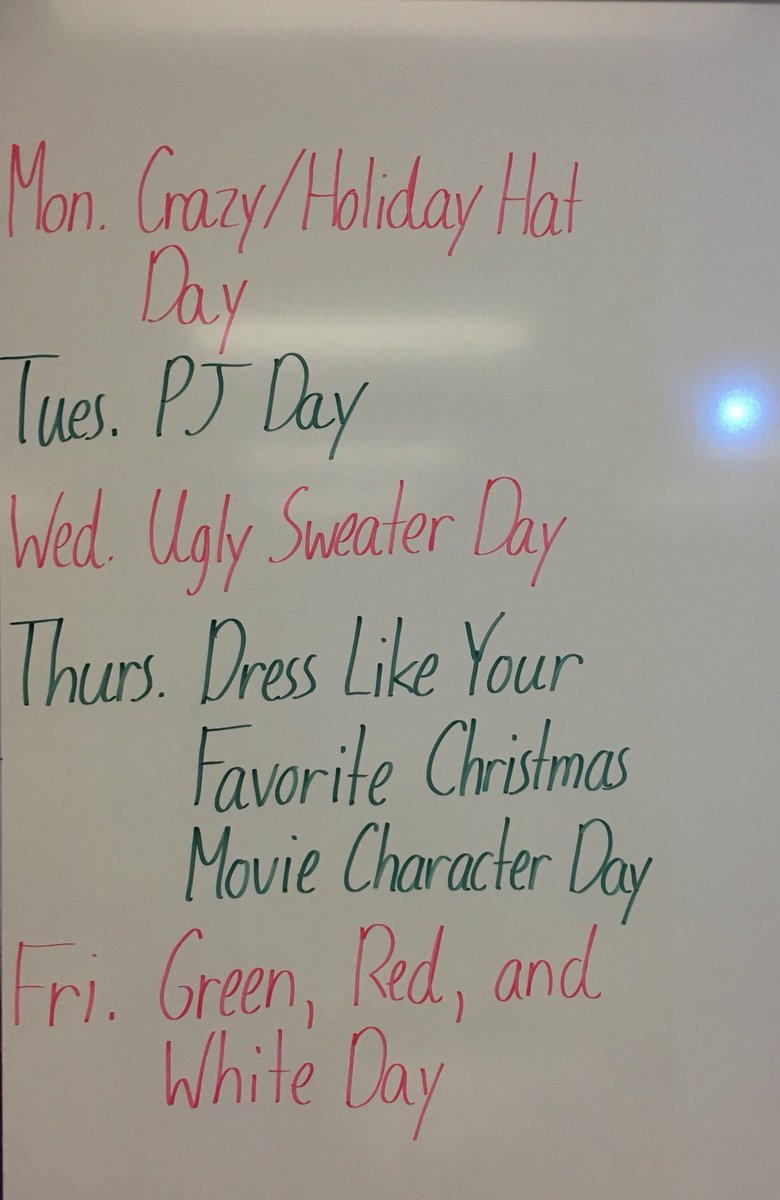 Mon. Crazy/Holiday Hat
Day
Tues. PJ Day
Wed. Ugly Sweater Day
Thurs. Dress Like Your
Favorite Christmas
Movie Character Day
Fri. Green, Red, and
White Day